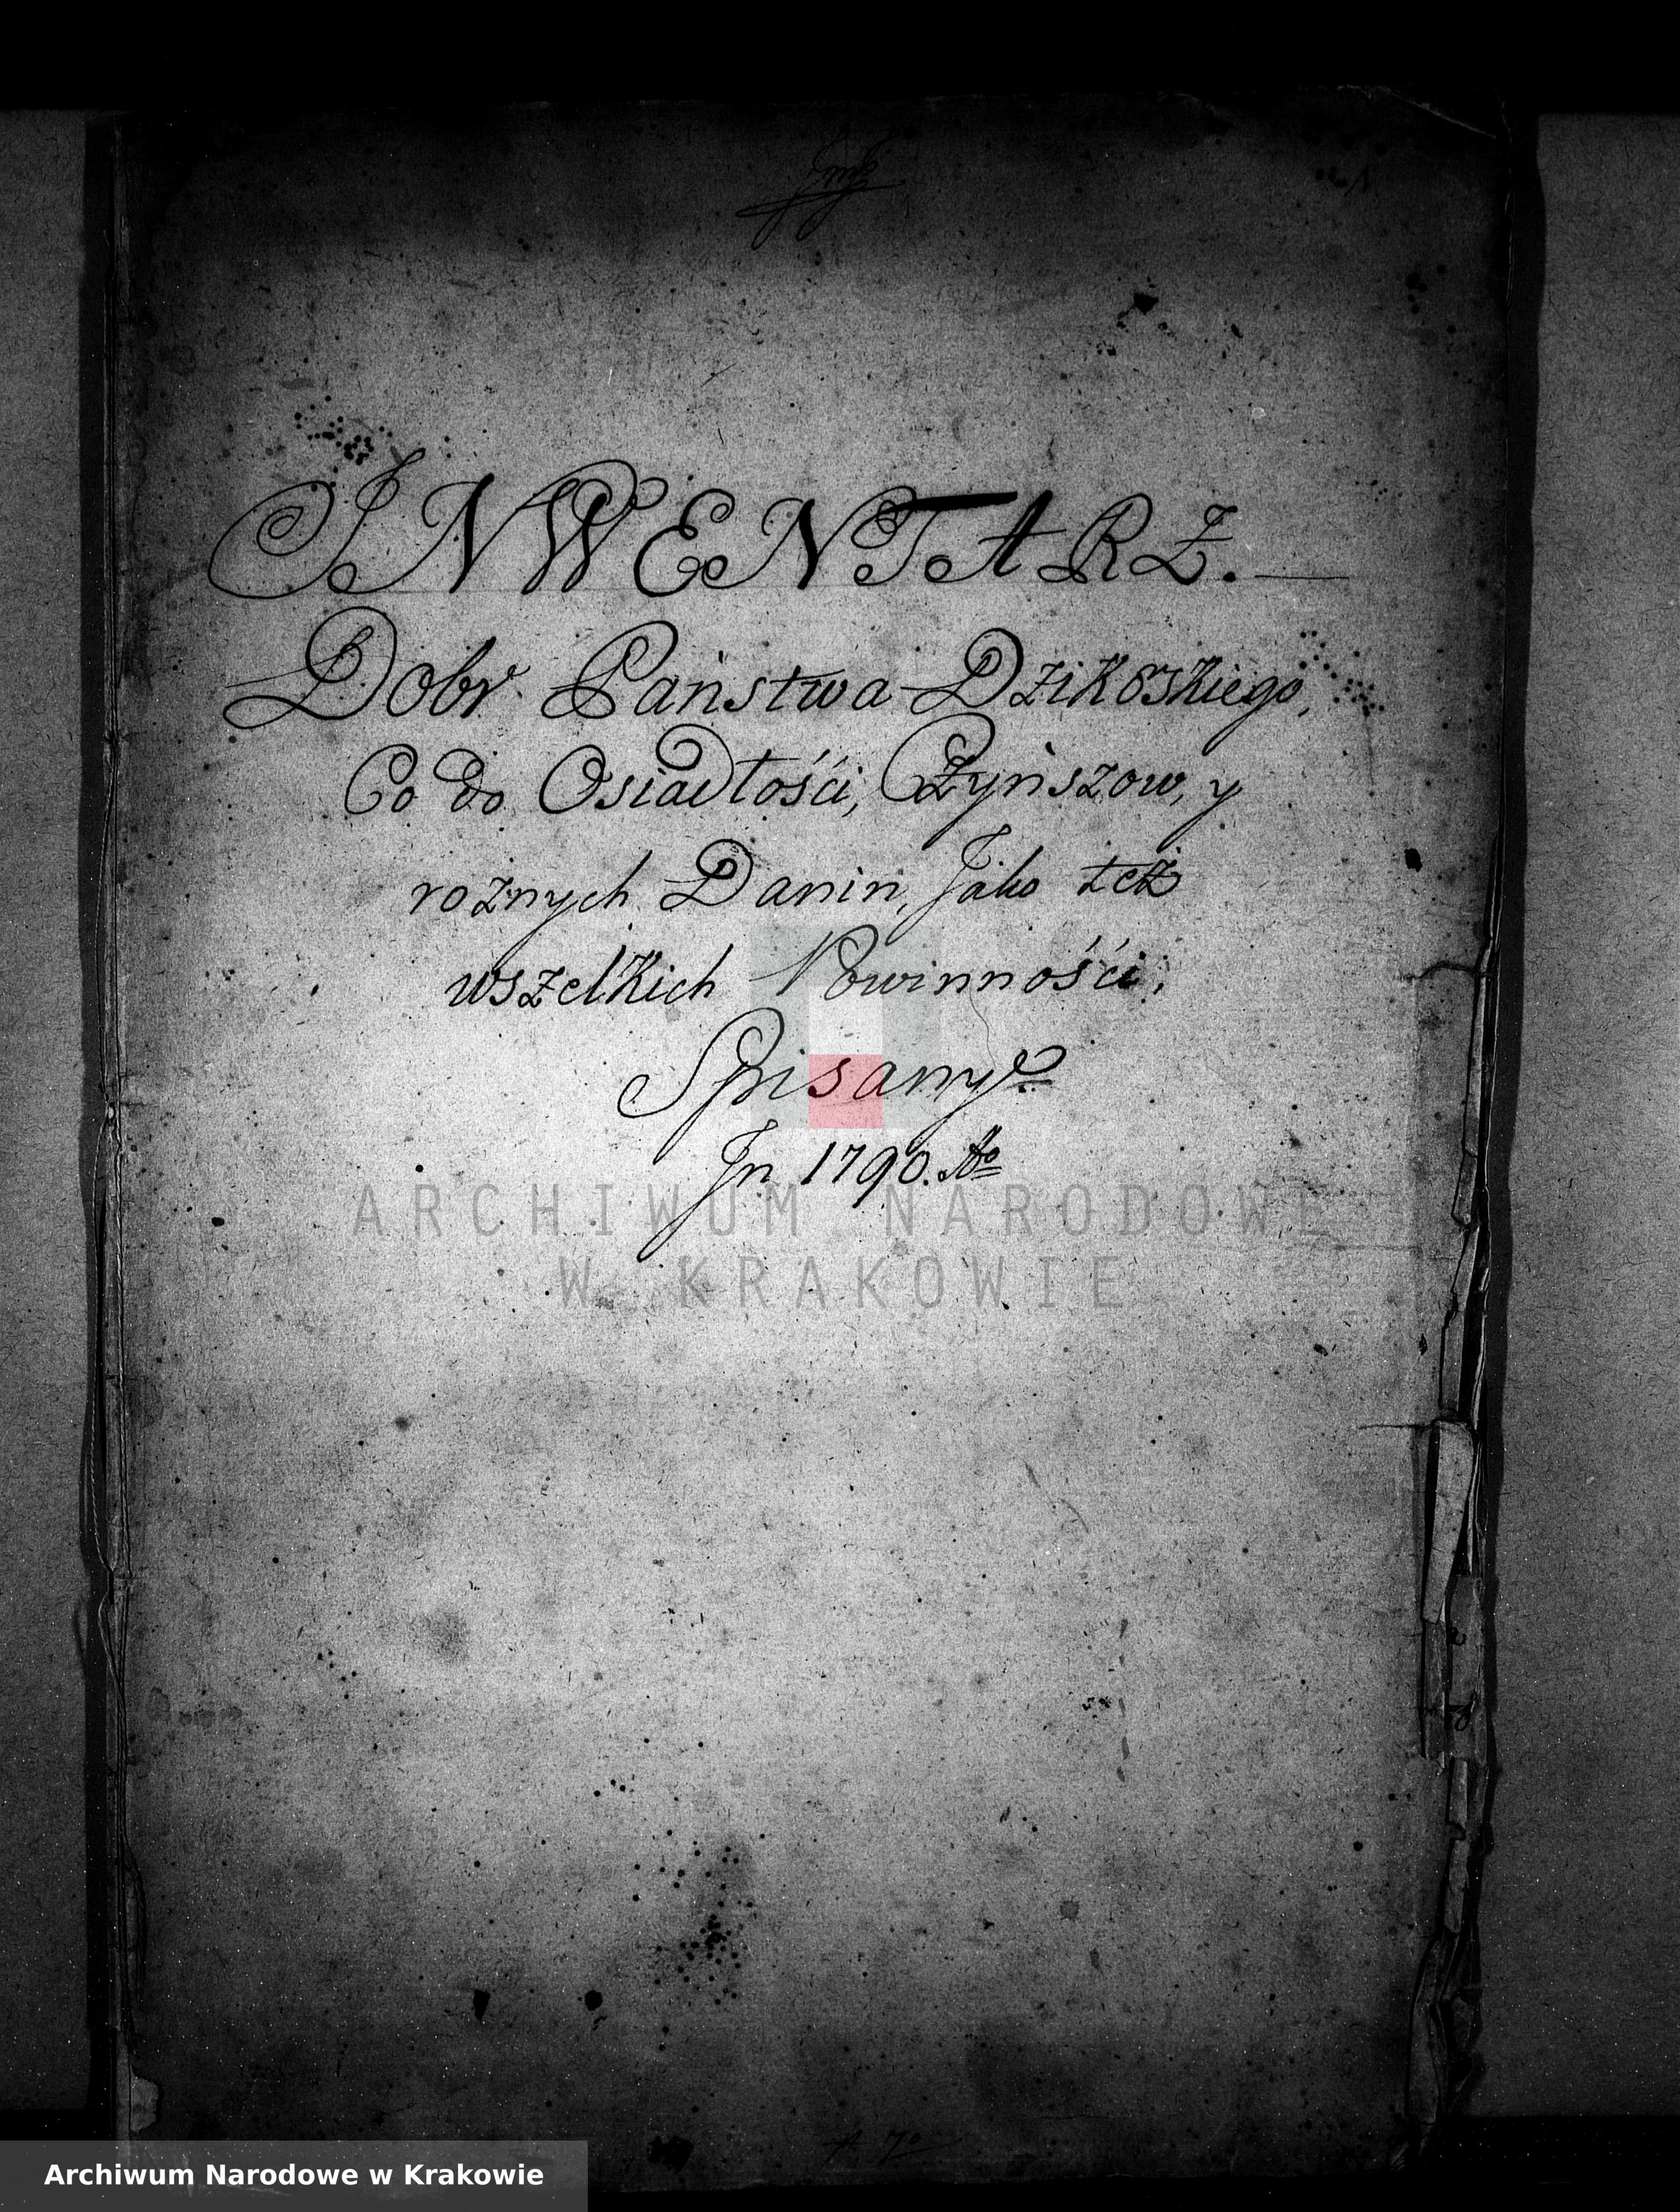 INWENTARZ.
Dobr Państwa Dzikowskiego,
Co do Osiadłości, Czyńszow, y
rożnych Danin, Jako też
wszelkich Powinności;
Spisany
Jn 1790. Ao
ARCHIWUM NARODOWE
W KRAKOWIE
Archiwum Narodowe w Krakowie